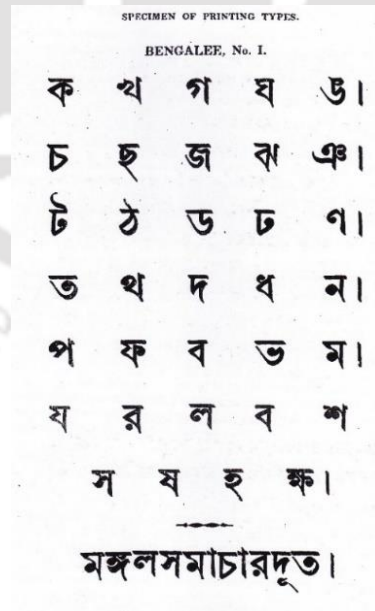 SPECIMEN OF PRINTING TYPES.
BENGALEE, No. I.
ক খ গ ঘ ঙ।
চ ছ জ ঝ ঞ।
ট ঠ ড ঢ ণ।
ত থ দ ধ ন।
প ফ ব ভ ম।
য র ল ব শ
স ষ হ ক্ষ।
মঙ্গলসমাচারদূত।